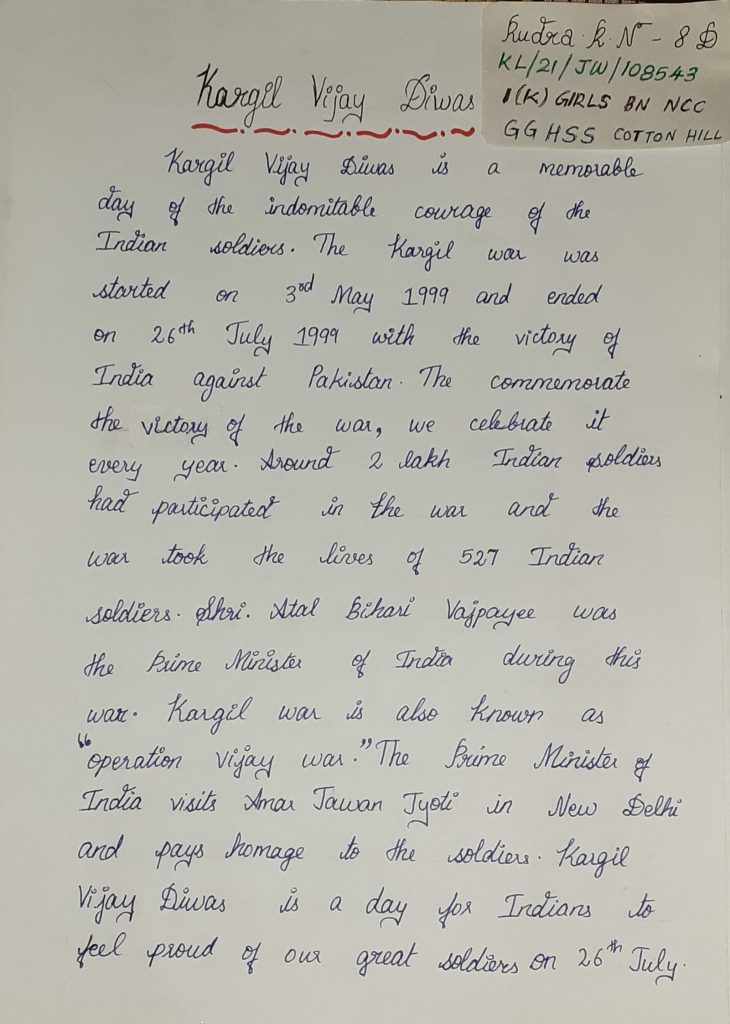 Rudra. R. N - 8 D
KL/21/JW/108543
1(K) GIRLS BN NCC
GGHSS COTTON HILL
Kargil Vijay Diwas
Kargil Vijay Diwas is a memorable
day of the indomitable courage of the
Indian soldiers. The Kargil war was
started on 3rd May 1999 and ended
on 26th July 1999 with the victory of
India against Pakistan. The commemorate
the victory of the war, we celebrate it
every year. Around 2 lakh Indian soldiers
had participated in the war and the
war took the lives of 527 Indian
soldiers. Shri. Atal Bihari Vajpayee was
the Prime Minister of India during this
war. Kargil war is also known as
"operation Vijay war." The Prime Minister of
India visits Amar Jawan Jyoti in New Delhi
and pays homage to the soldiers. Kargil
Vijay Diwas is a day for Indians to
feel proud of our great soldiers on 26th July.